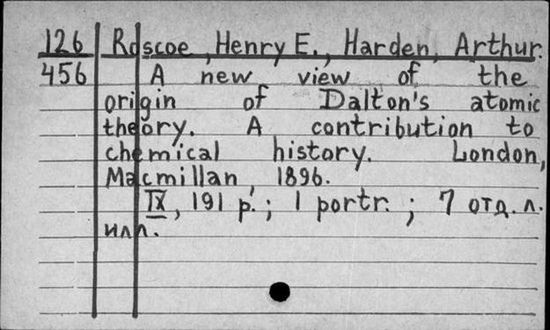 126 Roscoe, Henry E., Harden, Arthur.
456 A new view of the
origin of Dalton's atomic
theory. A contribution to
chemical history. London,
Macmillan, 1896.
IX, 191 p.; 1 portr.; 7 отд. л.
илл.